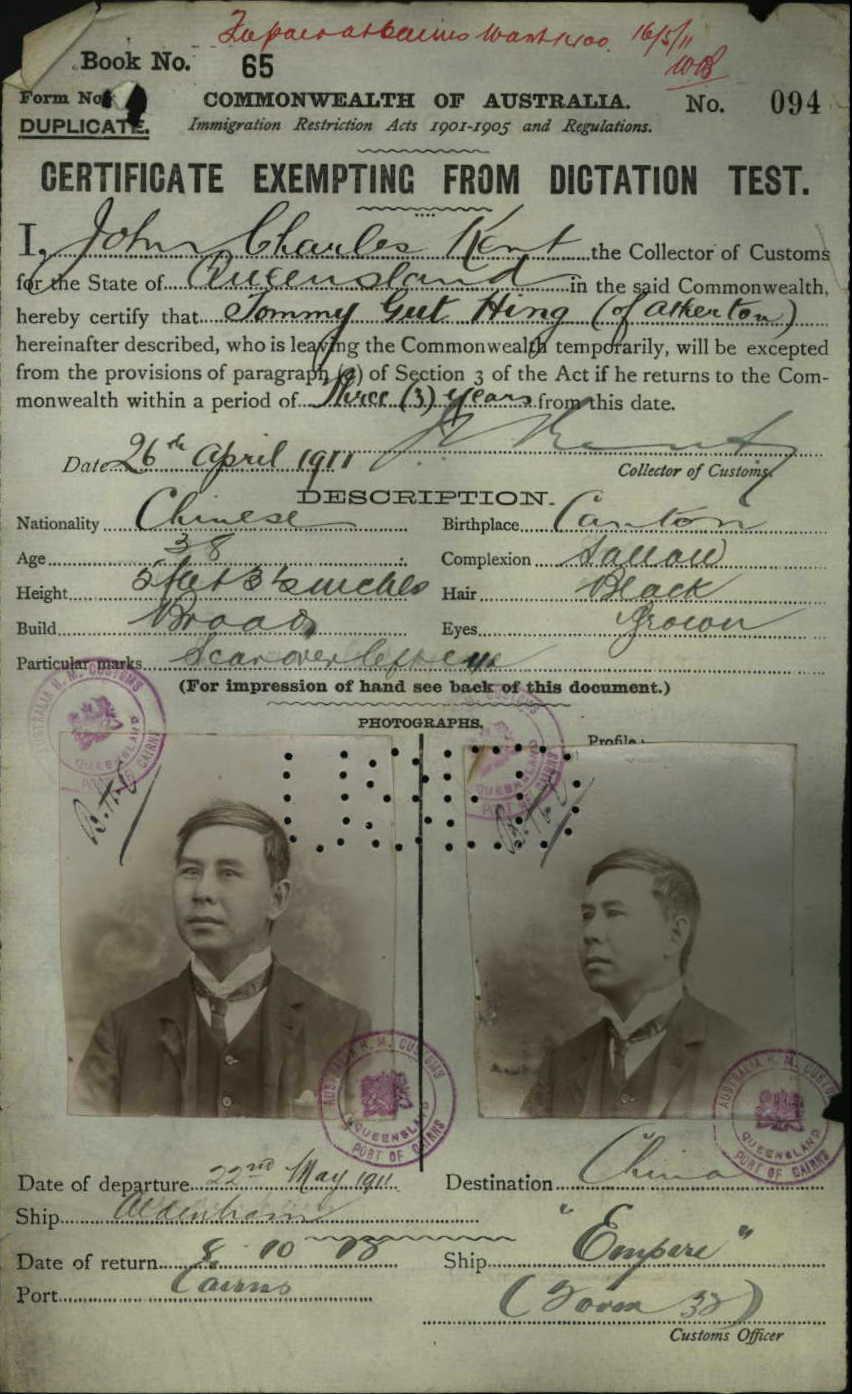 16/5/11
Book No. 65
Form No.
COMMONWEALTH OF AUSTRALIA. No. 094
DUPLICATE. Immigration Restriction Acts 1901-1905 and Regulations.
CERTIFICATE EXEMPTING FROM DICTATION TEST.
I, John Charles Kent the Collector of Customs
for the State of Queensland in the said Commonwealth,
hereby certify that Tommy Gut Hing (of Atherton)
hereinafter described, who is leaving the Commonwealth temporarily, will be excepted
from the provisions of paragraph (a) of Section 3 of the Act if he returns to the Com-
monwealth within a period of Three (3) years from this date.
Date 26th April 1911
Collector of Customs.
DESCRIPTION.
Nationality Chinese Birthplace Canton
Age 38 Complexion Sallow
Height 5 feet 3½ inches Hair Black
Build Broad Eyes Brown
Particular marks Scar over left eye
(For impression of hand see back of this document.)
PHOTOGRAPHS.
Profile:
AUSTRALIA H. M. CUSTOMS
QUEENSLAND
PORT OF CAIRNS
QUEENSLAND
PORT OF CAIRNS
AUSTRALIA H. M. CUSTOMS
QUEENSLAND
PORT OF CAIRNS
AUSTRALIA H. M. CUSTOMS
QUEENSLAND
PORT OF CAIRNS
Date of departure 22nd May 1911. Destination China
Ship Aldenham
Date of return 8 10 13 Ship "Empire"
Port Cairns
(Form 32)
Customs Officer